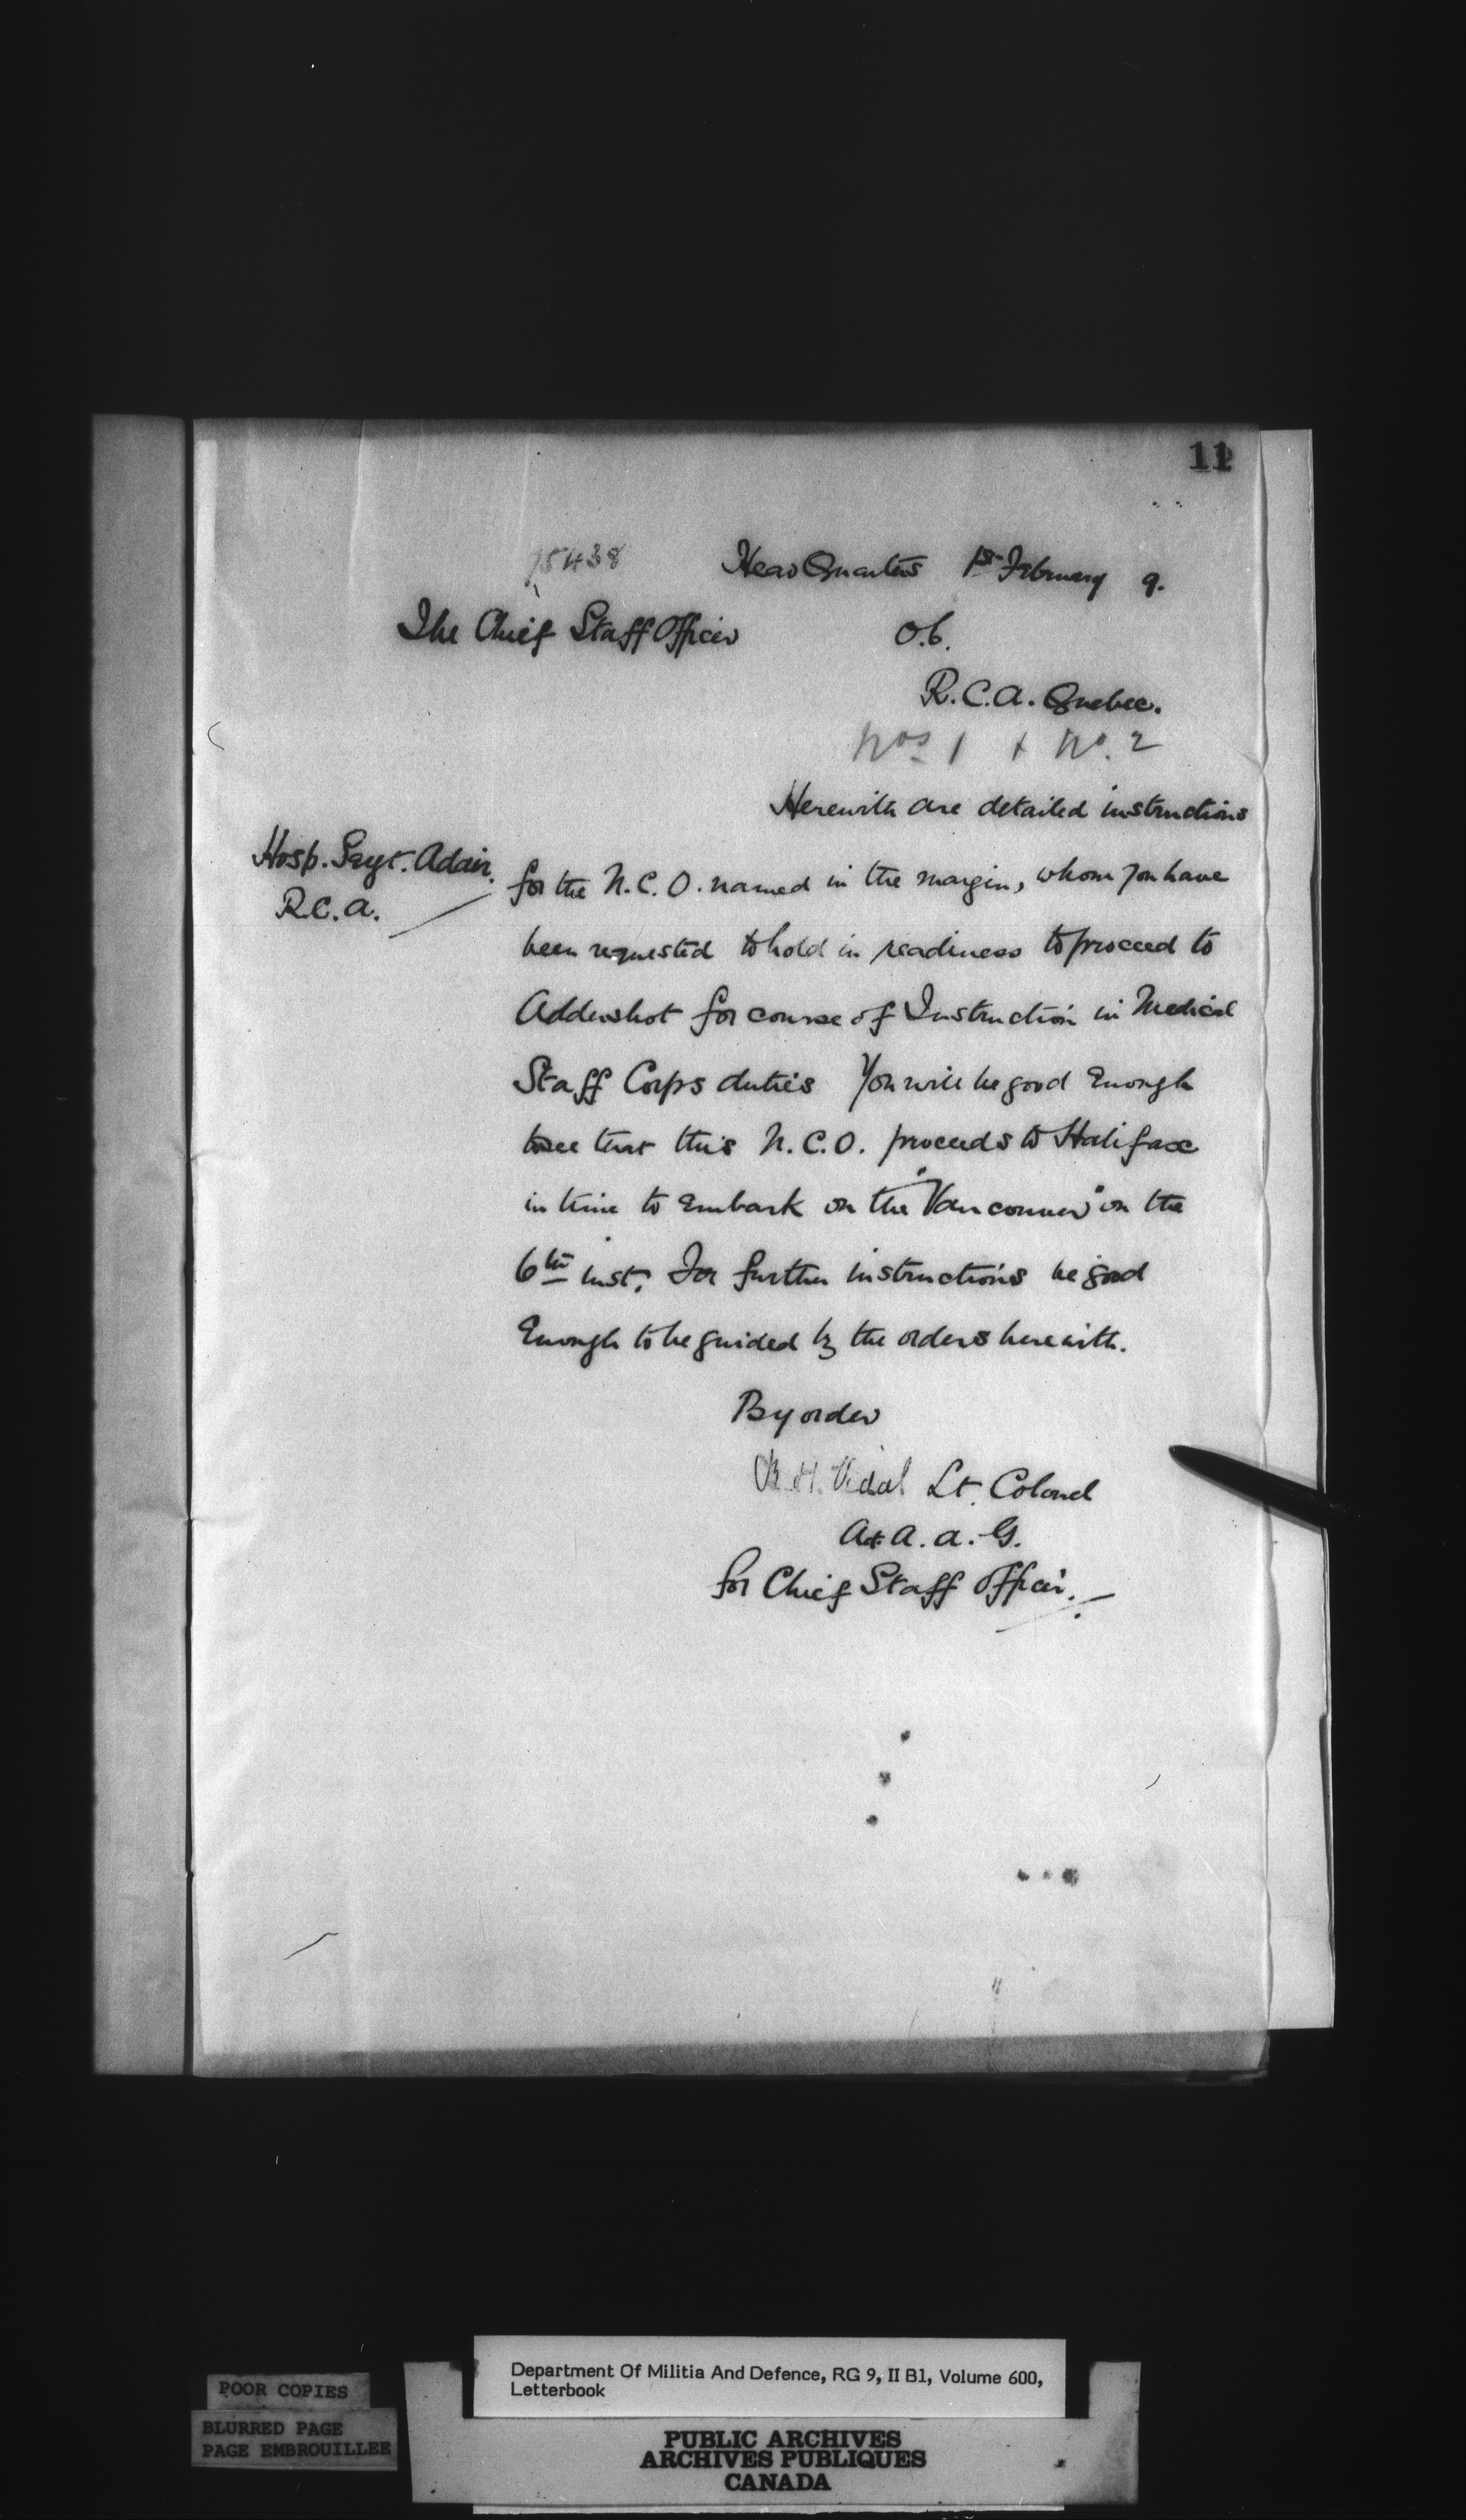 11
15438
Head Quarters 1st February 9.
The Chief Staff Officer
O.C.
R.C.A. Quebec.
Nos 1 & No. 2
Herewith are detailed instructions
Hosp. Sergt. Adair.
R.C.A.
for the N.C.O. named in the margin, whom you have
been requested to hold in readiness to proceed to
Aldershot for course of Instruction in Medical
Staff Corps duties You will be good Enough
to see that this N.C.O. proceeds to Halifax
in time to Embark on the "Vancouver" on the
6th inst. For further instructions be good
Enough to be guided by the orders herewith.
By order
B.H. Vidal Lt. Colonel
A.A.G.
for Chief Staff Officer.
POOR COPIES
BLURRED PAGE
PAGE EMBROUILLEE
Department Of Militia And Defence, RG 9, II B1, Volume 600,
Letterbook
PUBLIC ARCHIVES
ARCHIVES PUBLIQUES
CANADA